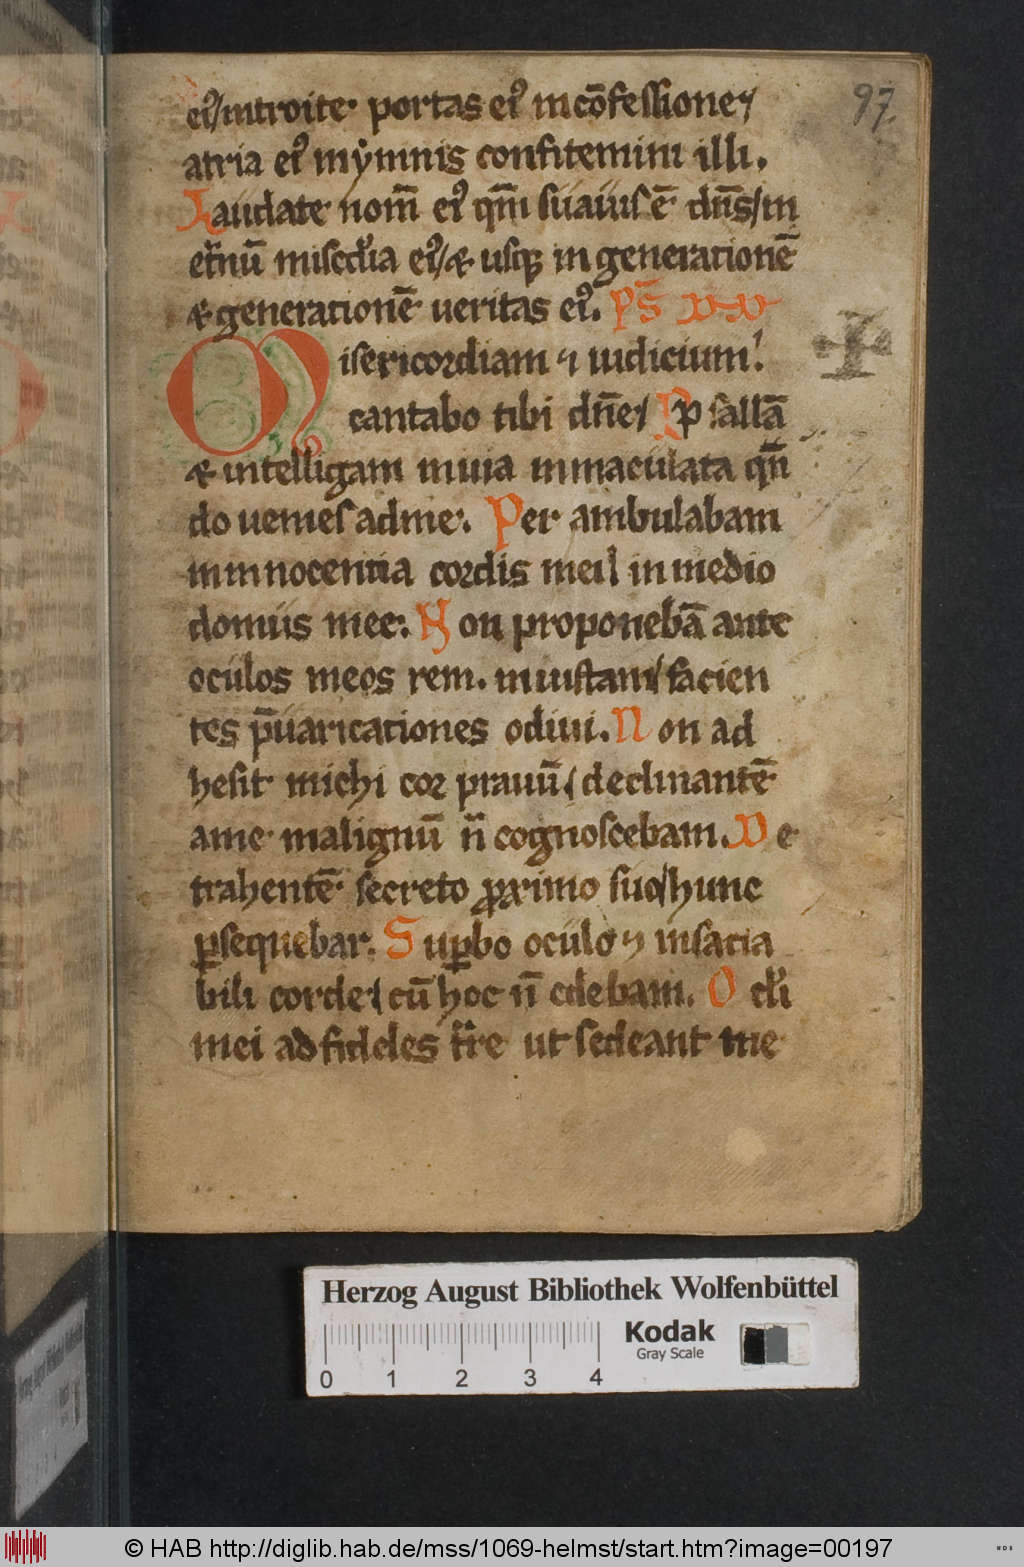 97.
eiꝰ/ introite· portas eiꝰ in cōfessione/
atria eiꝰ in ẏmnis confitemini illi.
Laudate nom̄ eiꝰ qm̄ suauis ē dn̄s/ in
et̄nū misc̄dia eiꝰ/ & usq; in generationē
& generationē ueritas eiꝰ. ps̄
Misericordiam ⁊ iudicium!
cantabo tibi dn̄e/ P sallā
& intelligam in uia inmaculata qn̄
do uenies ad me·. Per ambulabam
in innocentia cordis mei/ in medio
domus mee·. Non proponebā ante
oculos meos rem. iniustam/ facien
tes p̄uaricationes odiui. Non ad
hesit michi cor prauū/ declinantē
a me· malignū n̄ cognoscebam. De
trahentē· secreto ꝓximo suo/ hunc
ꝑsequebar·. Suꝑbo oculo ⁊ insacia
bili corde/ cū hoc n̄ edebam. Oc̄li
mei ad fideles t̄re ut sedeant me
Herzog August Bibliothek Wolfenbüttel
Kodak
Gray Scale
0 1 2 3 4
© HAB http://diglib.hab.de/mss/1069-helmst/start.htm?image=00197